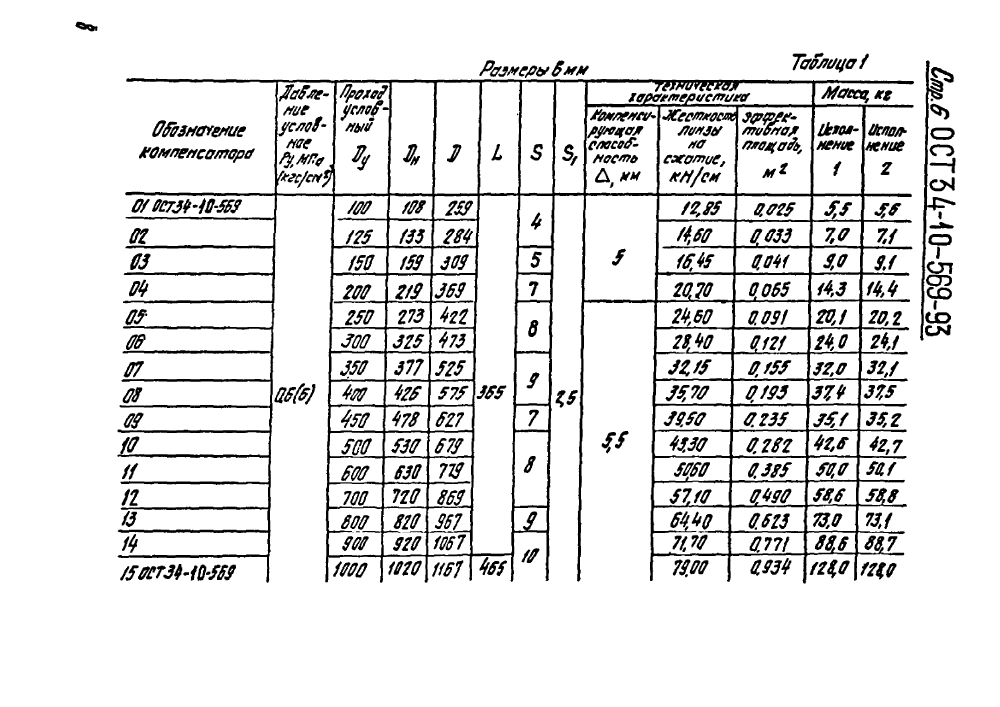 8
Стр. 6 ОСТ 34-10-569-93
Таблица 1
Размеры в мм
Обозначение компенсатора | Давление условное Ру, МПа (кгс/см²) | Проход условный Dу | Dн | D | L | S | S₁ | Техническая характеристика | Масса, кг
Компенсирующая способность △, мм | Жесткость линзы на сжатие, кН/см | Эффективная площадь, м² | Исполнение 1 | Исполнение 2
01 ОСТ 34-10-569 | 0,6(6) | 100 | 108 | 259 | 365 | 4 | 2,5 | 5 | 12,85 | 0,025 | 5,5 | 5,6
02 | 125 | 133 | 284 | 14,60 | 0,033 | 7,0 | 7,1
03 | 150 | 159 | 309 | 5 | 16,45 | 0,041 | 9,0 | 9,1
04 | 200 | 219 | 369 | 7 | 20,70 | 0,065 | 14,3 | 14,4
05 | 250 | 273 | 422 | 8 | 5,5 | 24,60 | 0,091 | 20,1 | 20,2
06 | 300 | 325 | 473 | 28,40 | 0,121 | 24,0 | 24,1
07 | 350 | 377 | 525 | 9 | 32,15 | 0,155 | 32,0 | 32,1
08 | 400 | 426 | 575 | 35,70 | 0,193 | 37,4 | 37,5
09 | 450 | 478 | 627 | 7 | 39,50 | 0,235 | 35,1 | 35,2
10 | 500 | 530 | 679 | 8 | 43,30 | 0,282 | 42,6 | 42,7
11 | 600 | 630 | 779 | 50,60 | 0,385 | 50,0 | 50,1
12 | 700 | 720 | 869 | 57,10 | 0,490 | 58,6 | 58,8
13 | 800 | 820 | 967 | 9 | 64,40 | 0,623 | 73,0 | 73,1
14 | 900 | 920 | 1067 | 10 | 71,70 | 0,771 | 88,6 | 88,7
15 ОСТ 34-10-569 | 1000 | 1020 | 1167 | 465 | 79,00 | 0,934 | 128,0 | 128,0